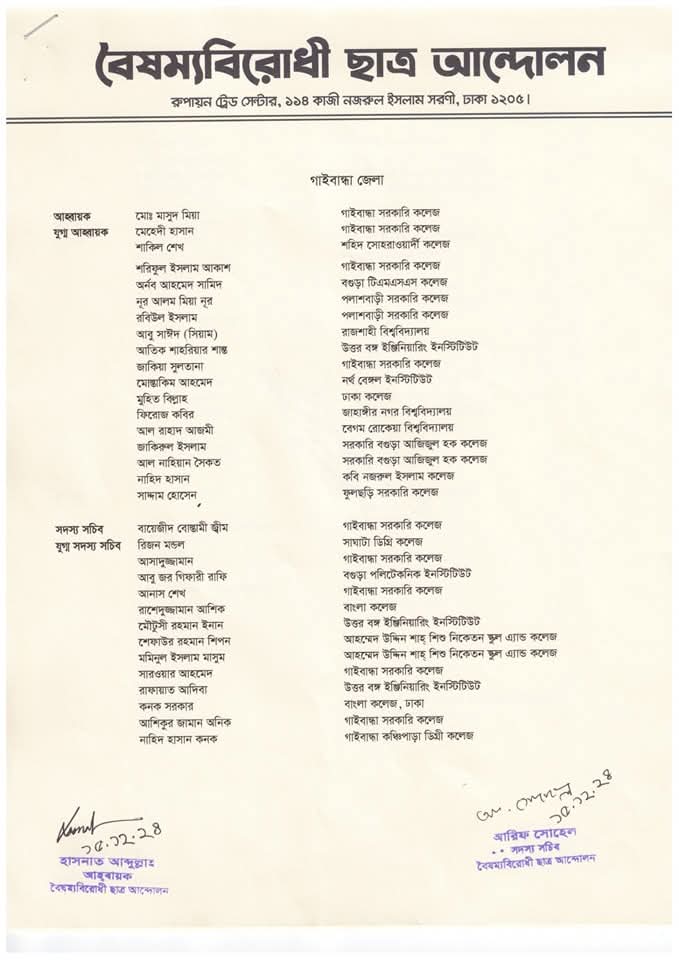 বৈষম্যবিরোধী ছাত্র আন্দোলন
রুপায়ন ট্রেড সেন্টার, ১১৪ কাজী নজরুল ইসলাম সরণী, ঢাকা ১২০৫।
গাইবান্ধা জেলা
আহ্বায়ক মোঃ মাসুদ মিয়া গাইবান্ধা সরকারি কলেজ
যুগ্ম আহ্বায়ক মেহেদী হাসান গাইবান্ধা সরকারি কলেজ
শাকিল শেখ শহিদ সোহরাওয়ার্দী কলেজ
শরিফুল ইসলাম আকাশ গাইবান্ধা সরকারি কলেজ
অর্নব আহমেদ সামিদ বগুড়া টিএমএসএস কলেজ
নূর আলম মিয়া নূর পলাশবাড়ী সরকারি কলেজ
রবিউল ইসলাম পলাশবাড়ী সরকারি কলেজ
আবু সাঈদ (সিয়াম) রাজশাহী বিশ্ববিদ্যালয়
আতিক শাহরিয়ার শান্ত উত্তর বঙ্গ ইঞ্জিনিয়ারিং ইনস্টিটিউট
জাকিয়া সুলতানা গাইবান্ধা সরকারি কলেজ
মোস্তাকিম আহমেদ নর্থ বেঙ্গল ইনস্টিটিউট
মুহিত বিল্লাহ ঢাকা কলেজ
ফিরোজ কবির জাহাঙ্গীর নগর বিশ্ববিদ্যালয়
আল রাহাদ আজমী বেগম রোকেয়া বিশ্ববিদ্যালয়
জাকিরুল ইসলাম সরকারি বগুড়া আজিজুল হক কলেজ
আল নাহিয়ান সৈকত সরকারি বগুড়া আজিজুল হক কলেজ
নাহিদ হাসান কবি নজরুল ইসলাম কলেজ
সাদ্দাম হোসেন ফুলছড়ি সরকারি কলেজ
সদস্য সচিব বায়েজীদ বোস্তামী জ্বীম গাইবান্ধা সরকারি কলেজ
যুগ্ম সদস্য সচিব রিজন মন্ডল সাঘাটা ডিগ্রি কলেজ
আসাদুজ্জামান গাইবান্ধা সরকারি কলেজ
আবু জর গিফারী রাফি বগুড়া পলিটেকনিক ইনস্টিটিউট
আনাস শেখ গাইবান্ধা সরকারি কলেজ
রাশেদুজ্জামান আশিক বাংলা কলেজ
মৌটুসী রহমান ইনান উত্তর বঙ্গ ইঞ্জিনিয়ারিং ইনস্টিটিউট
শেফাউর রহমান শিপন আহম্মেদ উদ্দিন শাহ্ শিশু নিকেতন স্কুল এ্যান্ড কলেজ
মমিনুল ইসলাম মাসুম আহম্মেদ উদ্দিন শাহ্ শিশু নিকেতন স্কুল এ্যান্ড কলেজ
সারওয়ার আহমেদ গাইবান্ধা সরকারি কলেজ
রাফায়াত আদিবা উত্তর বঙ্গ ইঞ্জিনিয়ারিং ইনস্টিটিউট
কনক সরকার বাংলা কলেজ, ঢাকা
আশিকুর জামান অনিক গাইবান্ধা সরকারি কলেজ
নাহিদ হাসান কনক গাইবান্ধা কঞ্চিপাড়া ডিগ্রী কলেজ
১৫.১২.২৪
হাসনাত আব্দুল্লাহ
আহ্বায়ক
বৈষম্যবিরোধী ছাত্র আন্দোলন
১৫.১২.২৪
আরিফ সোহেল
সদস্য সচিব
বৈষম্যবিরোধী ছাত্র আন্দোলন